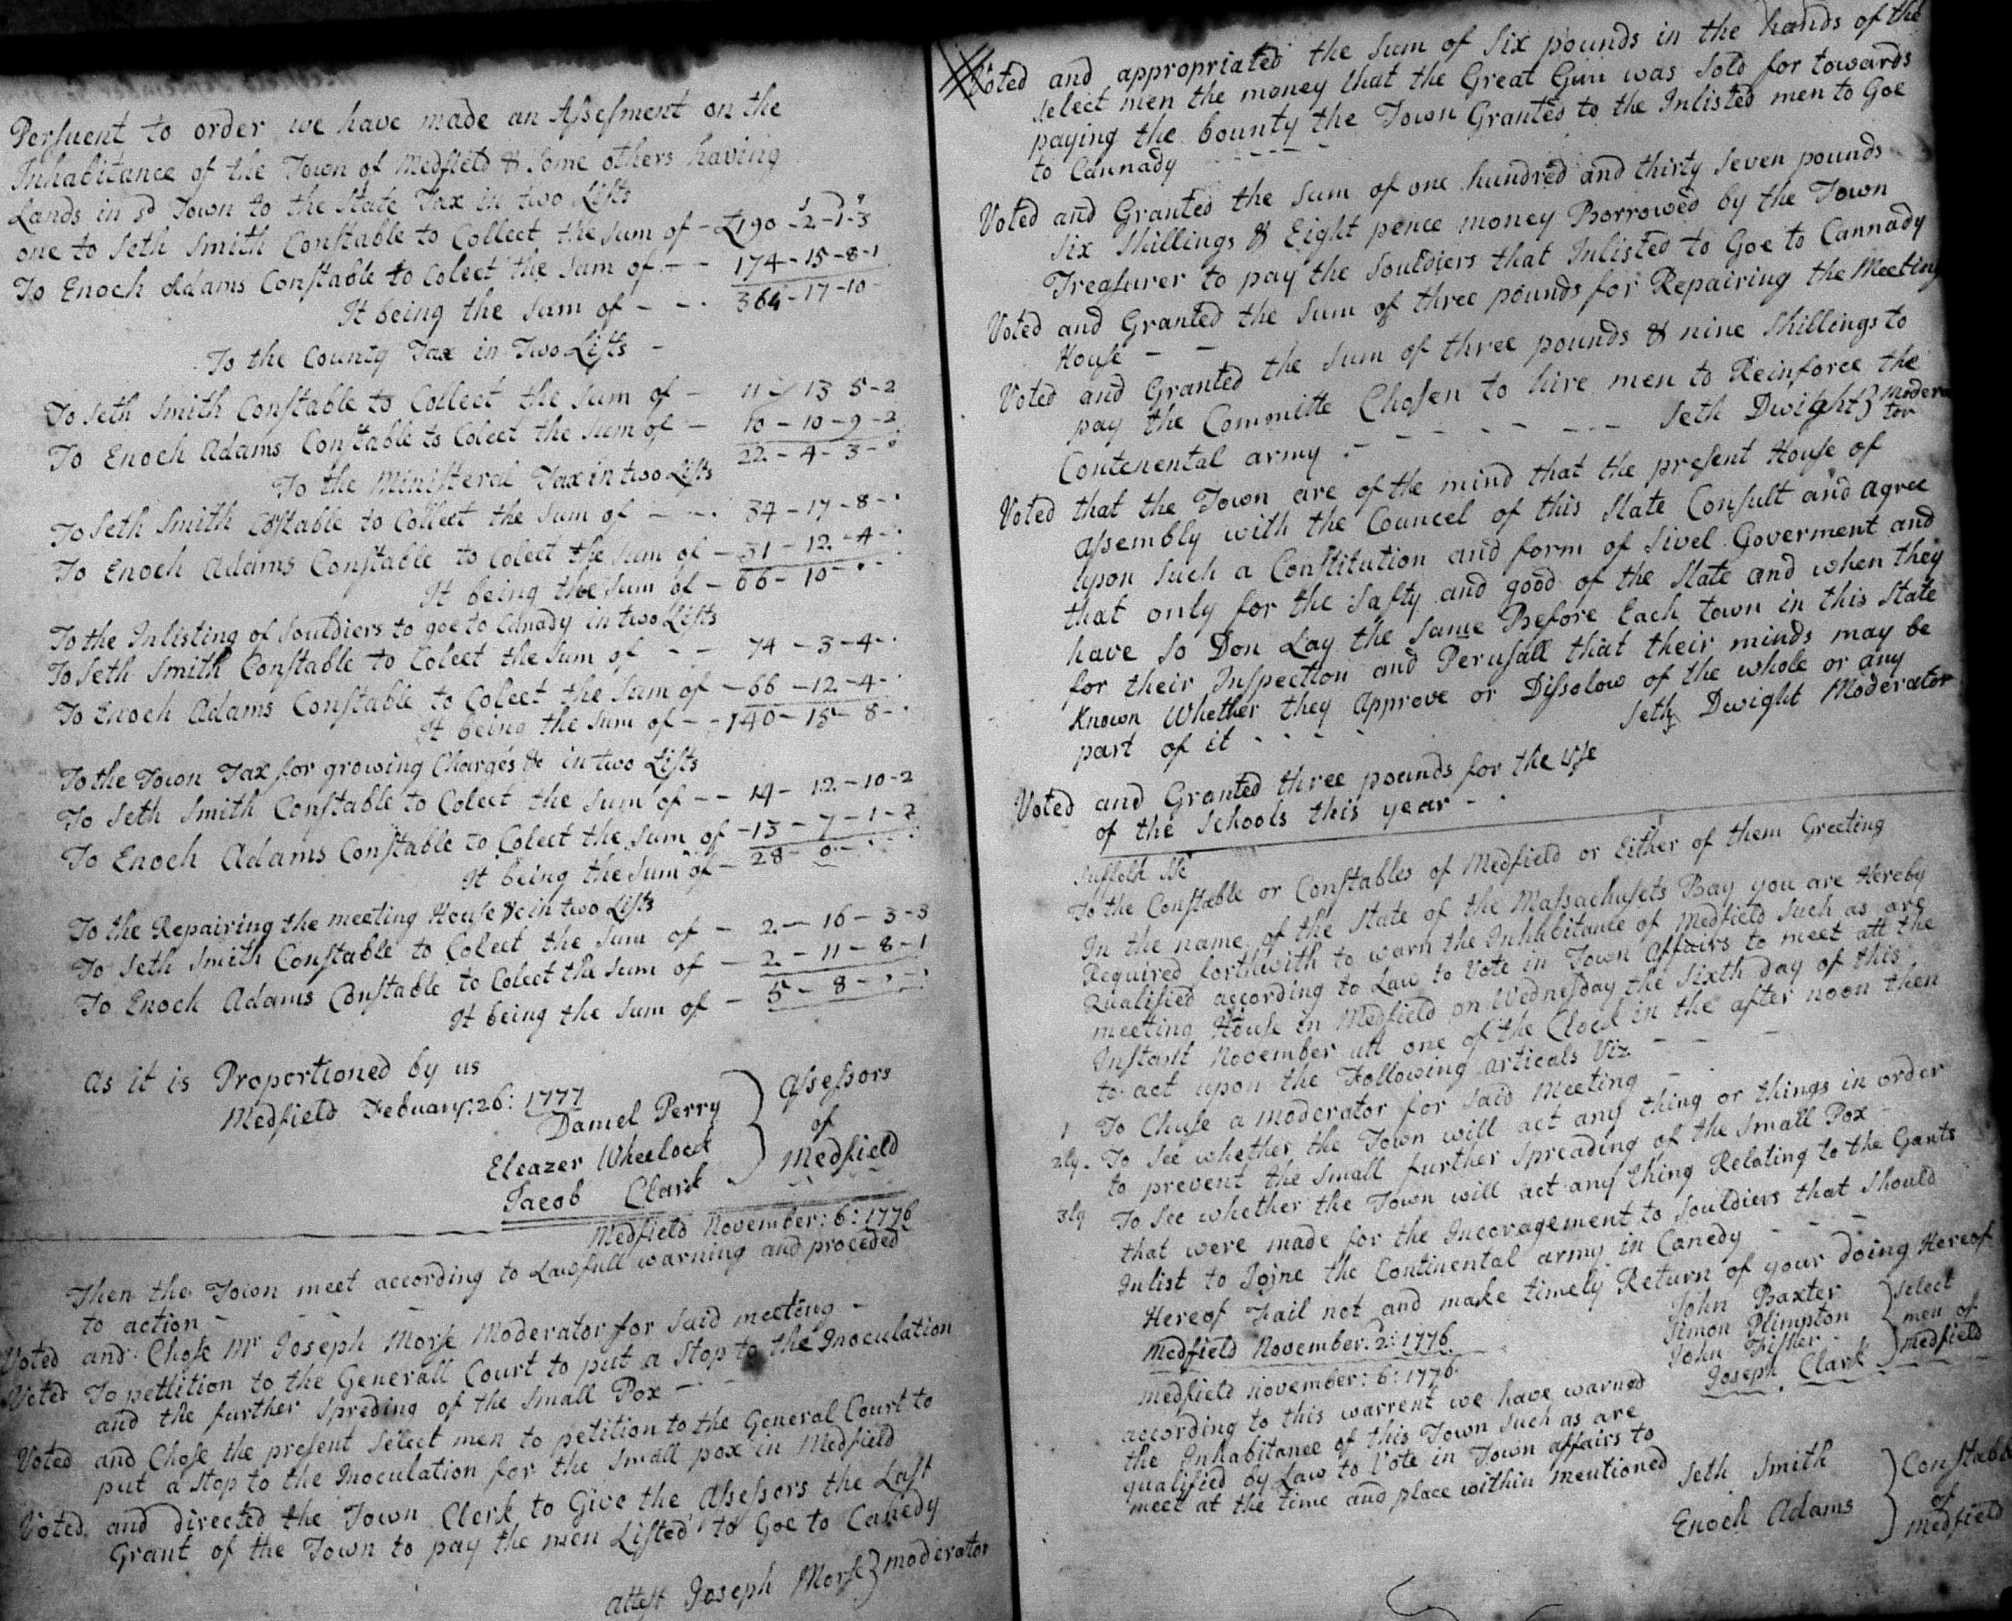 Persuent to order we have made an Assesment on the
Inhabitance of the Town of Medfield & Some others having
Lands in sd Town to the State Tax in two Lists
one to Seth Smith Constable to Collect the Sum of - £190 - 2 - 1 - 3
To Enoch Adams Constable to Colect the Sum of - - 174 - 15 - 8 - 1
It being the Sum of - - 364 - 17 - 10
To the County Tax in Two Lists -
To Seth Smith Constable to Collect the Sum of - 11 - 13 5 - 2
To Enoch Adams Constable to Colect the Sum of - 10 - 10 - 9 - 2
22 - 4 - 3 - 0
To the Ministeral Tax in two Lists
To Seth Smith Costable to Collect the Sum of - - - 34 - 17 - 8 - .
To Enoch Adams Constable to Colect the Sum of - 31 - 12 - 4 - .
It being the Sum of - 66 - 10 - . -
To the Inlisting of Souldiers to goe to Canady in two Lists
To Seth Smith Constable to Colect the Sum of - - 74 - 3 - 4 - .
To Enoch Adams Constable to Colect the Sum of - 66 - 12 - 4 - .
It being the Sum of - - 140 - 15 - 8 - .
To the Town Tax for growing Charges &c in two Lists
To Seth Smith Constable to Colect the Sum of - - 14 - 12 - 10 - 2
To Enoch Adams Constable to Colect the Sum of - 13 - 7 - 1 - 2
It being the Sum of - 28 - 0 - . .
To the Repairing the meeting House &c in two Lists
To Seth Smith Constable to Colect the Sum of - 2 - 16 - 3 - 3
To Enoch Adams Constable to Colect the Sum of - 2 - 11 - 8 - 1
It being the Sum of - 5 - 8 - . - .
as it is Proportioned by us
Medfield Febuary: 26: 1777
Daniel Perry
Eleazer Wheelock
Jacob Clark
Assessors
of
Medfield
Medfield November: 6: 1776
Then the Town meet according to Lawfull warning and proceded
to action - - -
Voted and Chose Mr Joseph Morse Moderator for Said meeting -
Voted To petition to the Generall Court to put a Stop to the Inoculation
and the further Spreding of the Small Pox - - -
Voted and Chose the present Select men to petition to the General Court to
put a Stop to the Inoculation for the Small pox in Medfield
Voted and directed the Town Clerk to Give the Assessors the Last
Grant of the Town to pay the men Listed to Goe to Canedy
attest Joseph Morse } moderator
Voted and appropriated the Sum of Six pounds in the hands of the
Select men the money that the Great Gun was Sold for towards
paying the bounty the Town Granted to the Inlisted men to Goe
to Cannady - - - -
Voted and Granted the Sum of one hundred and thirty Seven pounds
Six Shillings & Eight pence money Borrowed by the Town
Treasurer to pay the Souldiers that Inlisted to Goe to Cannady
Voted and Granted the Sum of three pounds for Repairing the Meeting
House - -
Voted and Granted the Sum of three pounds & nine Shillings to
pay the Committe Chosen to hire men to Reinforce the
Contenental army . - - - - - - - Seth Dwight } modera
tor
Voted that the Town are of the mind that the present House of
assembly with the Councel of this State Consult and agree
upon Such a Constitution and form of Sivel Goverment and
that only for the Safty and good of the State and when they
have So Don Lay the Same Before Each town in this State
for their Inspection and Perusall that their minds may be
Known Whether they Approve or Dissolow of the whole or any
part of it - - - - -
Seth Dwight Moderator
Voted and Granted three pounds for the Use
of the Schools this year - .
Suffolk Ss
To the Constable or Constables of Medfield or Either of them Greeting
In the name of the State of the Massachusets Bay you are Hereby
Required forthwith to warn the Inhabitance of Medfield Such as are
Qualified according to Law to Vote in Town Affairs to meet att the
meeting House in Medfield on Wednesday the Sixth day of this
Instant November att one of the Clock in the after noon then
to act upon the Following articals Viz - - -
1 To Chuse a moderator for Said Meeting - -
2ly. To See whether the Town will act any thing or things in order
to prevent the Small further Spreading of the Small Pox -
3ly To See whether the Town will act any thing Relating to the Gants
that were made for the Incoragement to Souldiers that Should
Inlist to Joine the Continental army in Canedy - - -
Hereof Fail not and make timely Return of your doing Hereof
Medfield November. 2: 1776
John Baxter
Simon Plimpton
John Fisher
Joseph Clark
Select
men of
Medfield
Medfield November: 6: 1776
according to this warrent we have warned
the Inhabitance of this Town Such as are
qualified by Law to Vote in Town affairs to
meet at the time and place within mentioned
Seth Smith
Enoch Adams
Constable
of
Medfield